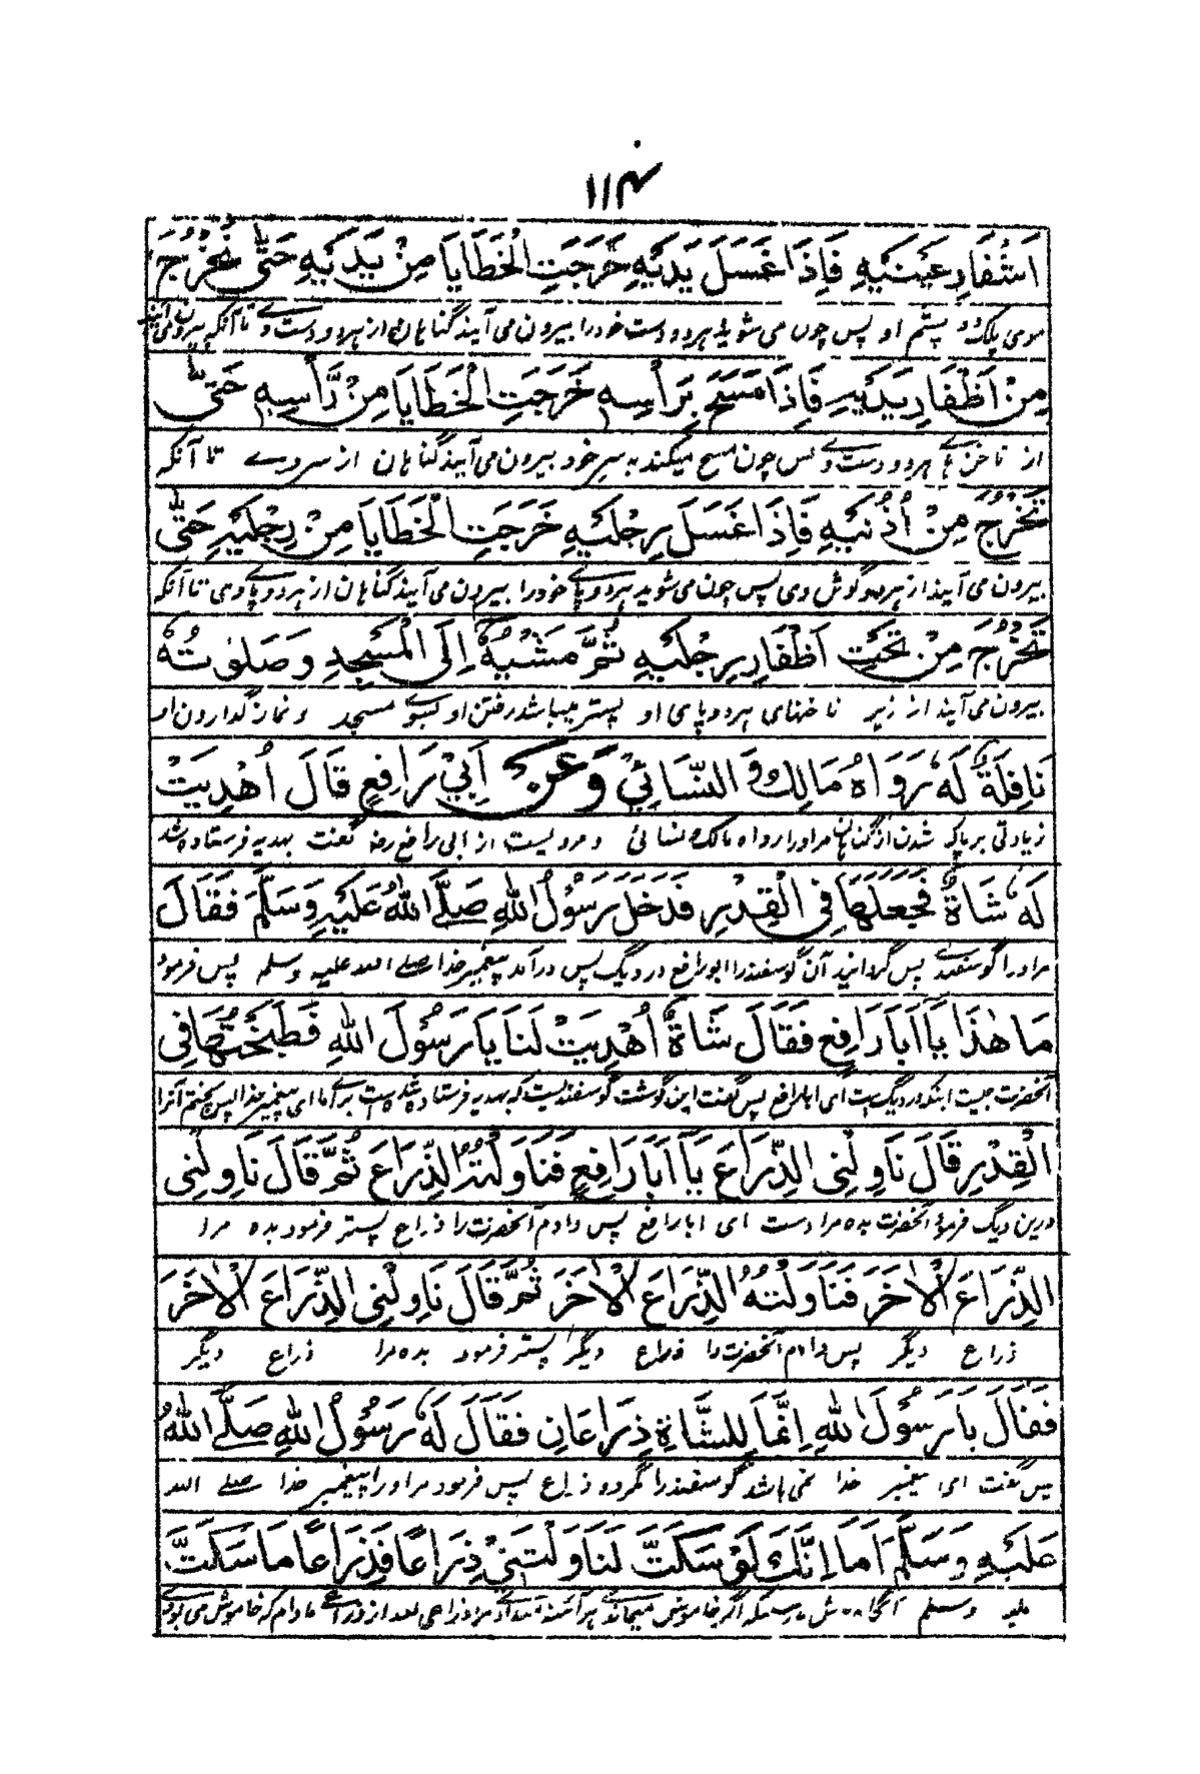 ۱۱۴
اَشْفَارِ عَيْنَيْهِ فَاِذَا غَسَلَ يَدَيْهِ خَرَجَتِ الْخَطَايَا مِنْ يَدَيْهِ حَتّٰى تَخْرُجَ
موی پلک چشم او پس چون می شوید هر دو دست خود را بیرون می آیند گناهان از هر دو دست وے تا آنکه بیرون می آیند
مِنْ اَظْفَارِ يَدَيْهِ فَاِذَا مَسَحَ بِرَاْسِهٖ خَرَجَتِ الْخَطَايَا مِنْ رَّاْسِهٖ حَتّٰى
از ناخن هاے هر دو دست وے پس چون مسح میکند به سر خود بیرون می آیند گناهان از سر وے تا آنکه
تَخْرُجَ مِنْ اُذُنَيْهِ فَاِذَا غَسَلَ رِجْلَيْهِ خَرَجَتِ الْخَطَايَا مِنْ رِجْلَيْهِ حَتّٰى
بیرون می آیند از هر دو گوش وی پس چون می شوید هر دو پاے خود را بیرون می آیند گناهان از هر دو پاے وی تا آنکه
تَخْرُجَ مِنْ تَحْتِ اَظْفَارِ رِجْلَيْهِ ثُمَّ مَشْيُهٗ اِلَى الْمَسْجِدِ وَصَلٰوتُهٗ
بیرون می آیند از زیر ناخنهای هر دو پای او پستر میباشد رفتن او بسوے مسجد و نماز گذاردن او
نَافِلَةً لَهٗ رَوَاهُ مَالِكٌ وَالنَّسَائِيُّ وَعَنْ اَبِيْ رَافِعٍ قَالَ اُهْدِيَتْ
زیادتی بر پاک شدن از گناهان مر او را رواه مالک و نسائی و مرویست از ابی رافع رض گفت بهدیه فرستاده شد
لَهٗ شَاةٌ فَجَعَلَهَا فِي الْقِدْرِ فَدَخَلَ رَسُوْلُ اللهِ صَلَّى اللهُ عَلَيْهِ وَسَلَّمَ فَقَالَ
مر او را گوسفندے پس گردانید آن گوسفند را ابو رافع در دیگ پس در آمد پیغمبر خدا صلے الله علیه وسلم پس فرمود
مَا هٰذَا يَا اَبَا رَافِعٍ فَقَالَ شَاةٌ اُهْدِيَتْ لَنَا يَا رَسُوْلَ اللهِ فَطَبَخْتُهَا فِي
آنحضرت چیست اینکه در دیگ است ای ابا رافع پس گفت این گوشت گوسفندیست که بهدیه فرستاده شده است براے ما ای پیغمبر خدا پس پختم آنرا
الْقِدْرِ قَالَ نَاوِلْنِي الذِّرَاعَ يَا اَبَا رَافِعٍ فَنَاوَلْتُهُ الذِّرَاعَ ثُمَّ قَالَ نَاوِلْنِي
درین دیگ فرمود آنحضرت بده مرا دست ای ابا رافع پس دادم آنحضرت را ذراع پستر فرمود بده مرا
الذِّرَاعَ الْاٰخَرَ فَنَاوَلْتُهُ الذِّرَاعَ الْاٰخَرَ ثُمَّ قَالَ نَاوِلْنِي الذِّرَاعَ الْاٰخَرَ
ذراع دیگر پس دادم آنحضرت را ذراع دیگر پستر فرمود بده مرا ذراع دیگر
فَقَالَ يَا رَسُوْلَ اللهِ اِنَّمَا لِلشَّاةِ ذِرَاعَانِ فَقَالَ لَهٗ رَسُوْلُ اللهِ صَلَّى اللهُ
پس گفت ای پیغمبر خدا نمی باشد گوسفند را مگر دو ذراع پس فرمود مر او را پیغمبر خدا صلے الله
عَلَيْهِ وَسَلَّمَ اَمَا اِنَّكَ لَوْ سَكَتَّ لَنَاوَلْتَنِيْ ذِرَاعًا فَذِرَاعًا مَا سَكَتَّ
علیه وسلم آگاه باش اگر خاموش میماندے هر آئینه میدادے مرا ذراعی بعد از ذراعے مادام که خاموش می بودے